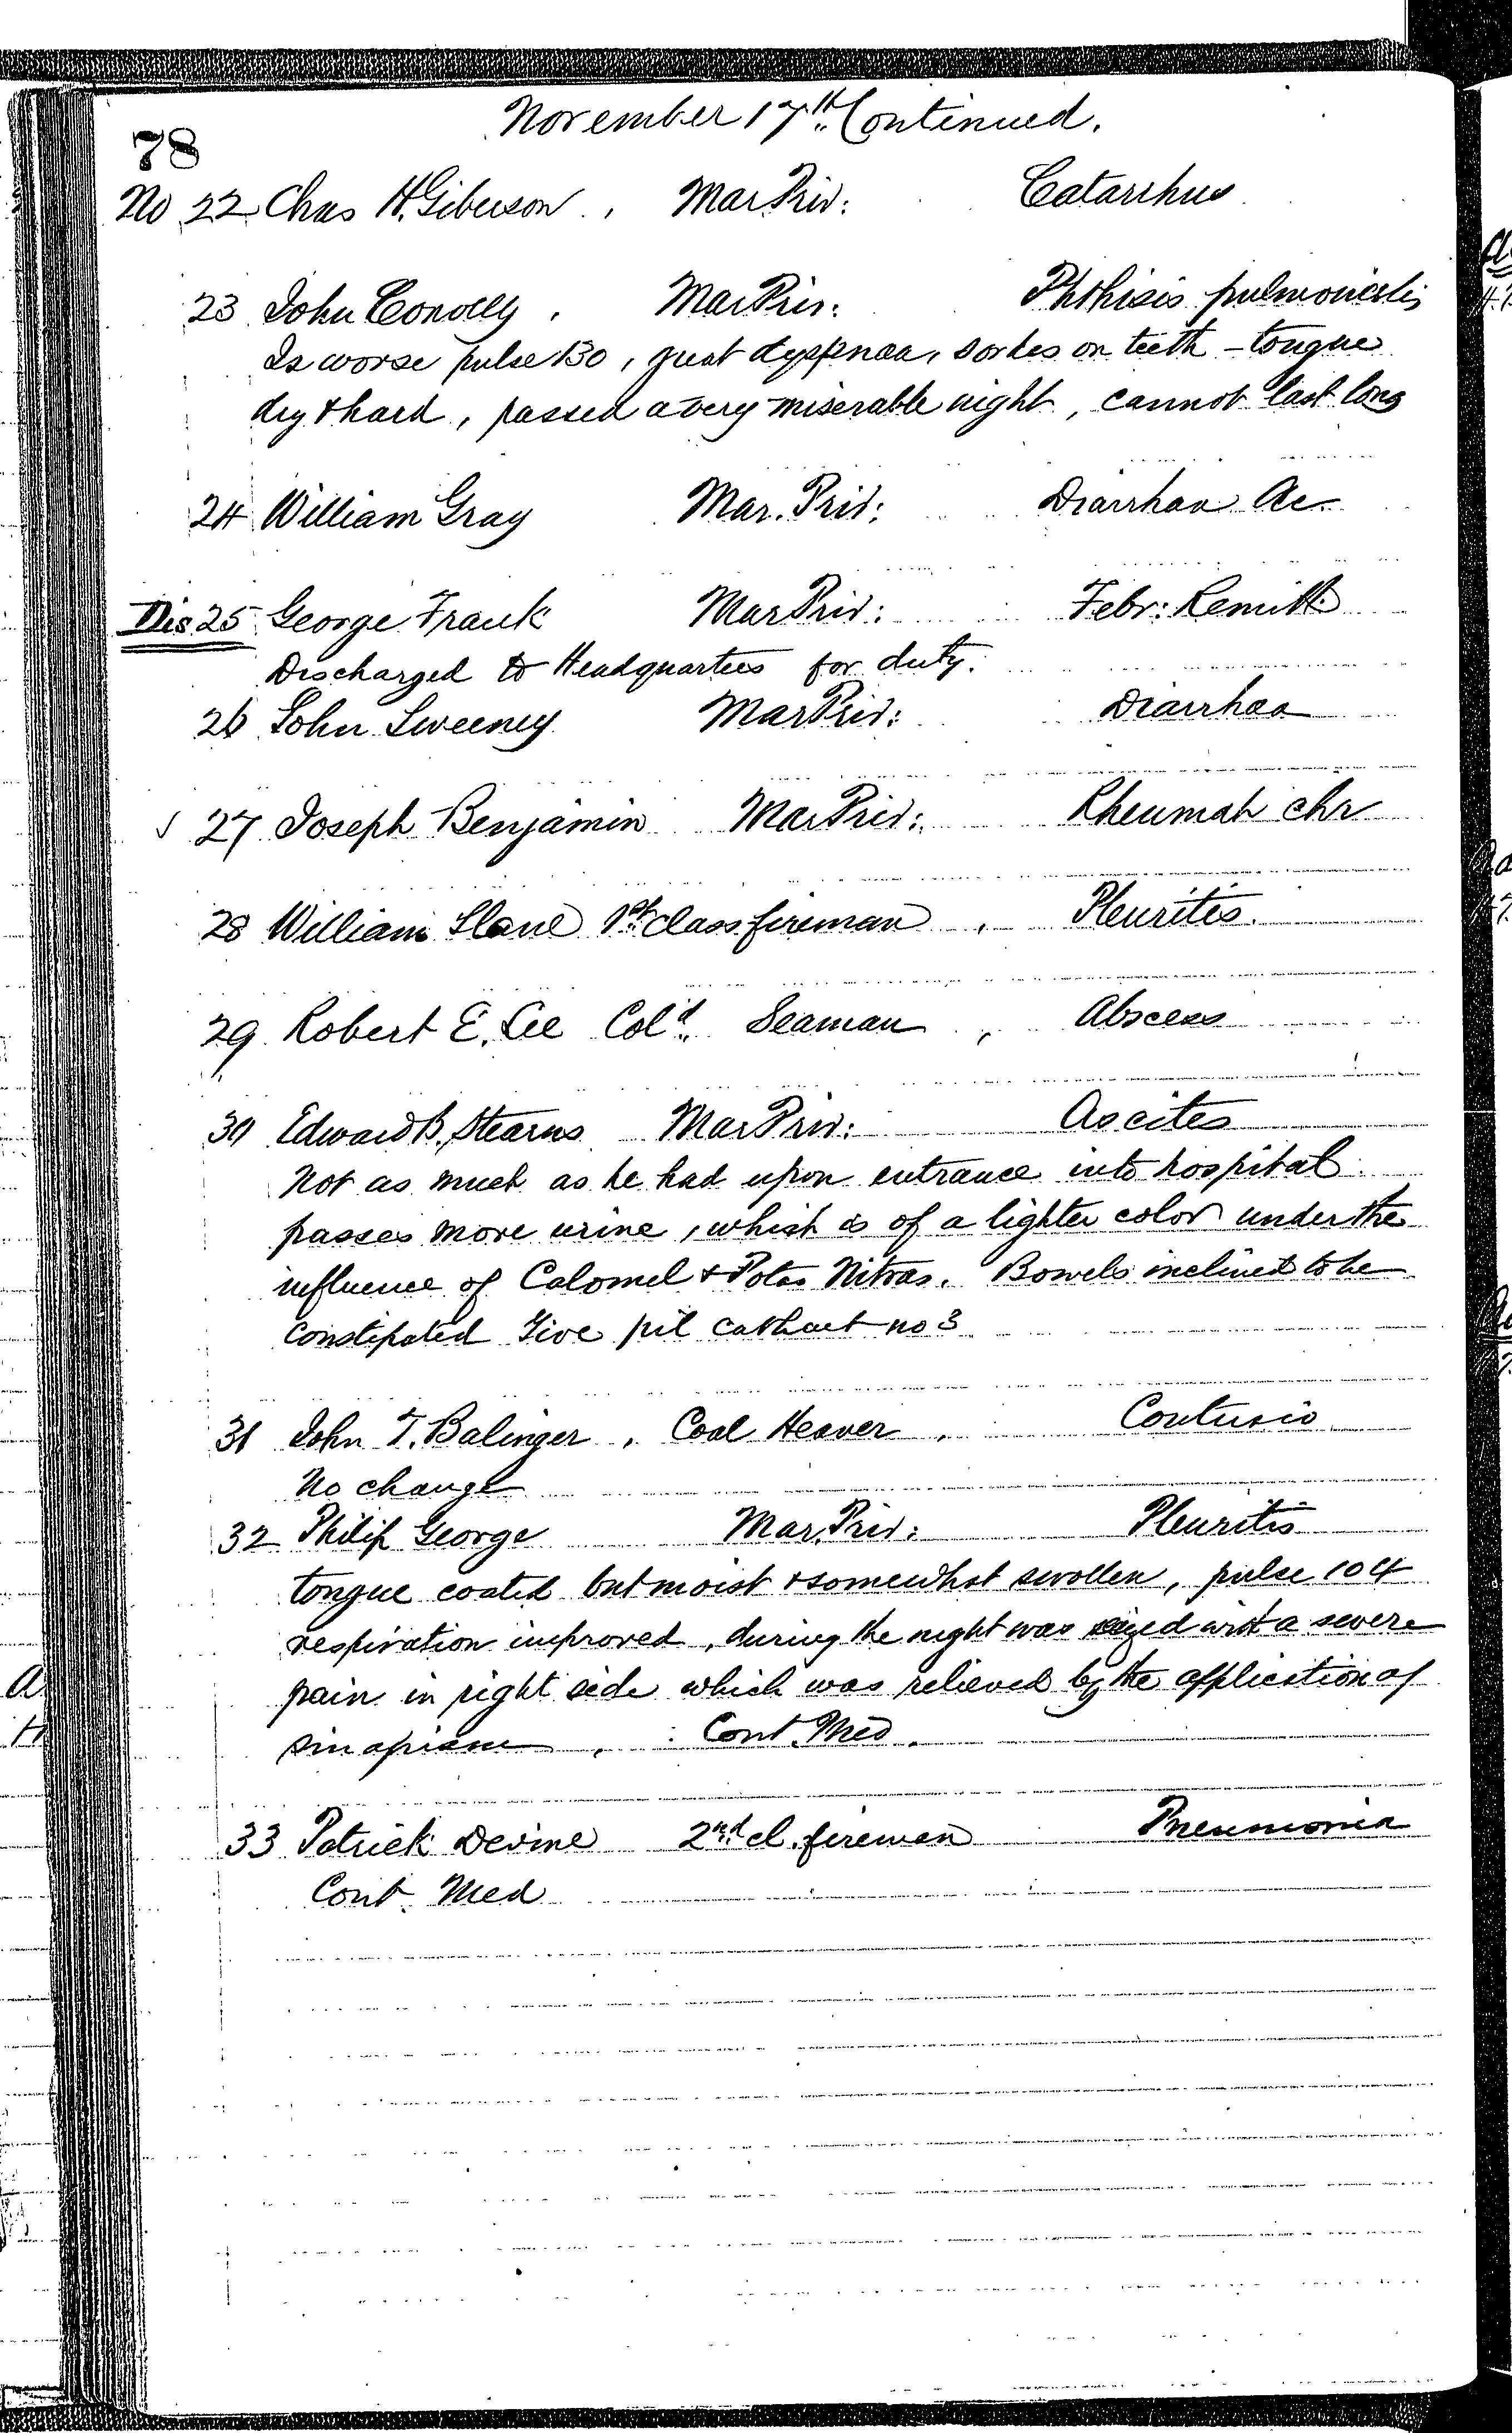 November 17th Continued.
78
No 22 Chas H. Giberson , Mar Priv: Catarrhus
23 John Conolly , Mar Priv: Phthisis pulmonalis
Is worse pulse 130 , great dyspnœa, sordes on teeth - tongue
dry & hard , passed a very miserable night , cannot last long
24 William Gray Mar. Priv: Diarrhœa Ac.
Dis 25 George Frank Mar Priv: Febr: Remitt:
Discharged to Headquarters for duty.
26 John Sweeney Mar Priv: Diarrhœa
27 Joseph Benjamin Mar Priv: Rheumat chr
28 William Slane 1st class fireman , Pleuritis.
29 Robert E. Lee Col'd. Seaman , Abscess
30 Edward B. Stearns Mar Priv: Ascites
Not as much as he had upon entrance into hospital.
passes more urine , which is of a lighter color under the
influence of Calomel & Potas Nitras. Bowels inclined to be
constipated Give pil cathart no 3
31 John T. Balinger , Coal Heaver , Contusio
No change
32 Philip George Mar. Priv: Pleuritis
tongue coated but moist & somewhat swollen , pulse 104
respiration improved , during the night was seized with a severe
pain in right side which was relieved by the application of
sinapism , Cont. Med .
33 Patrick Devine 2nd cl. fireman Pneumonia
Cont. Med